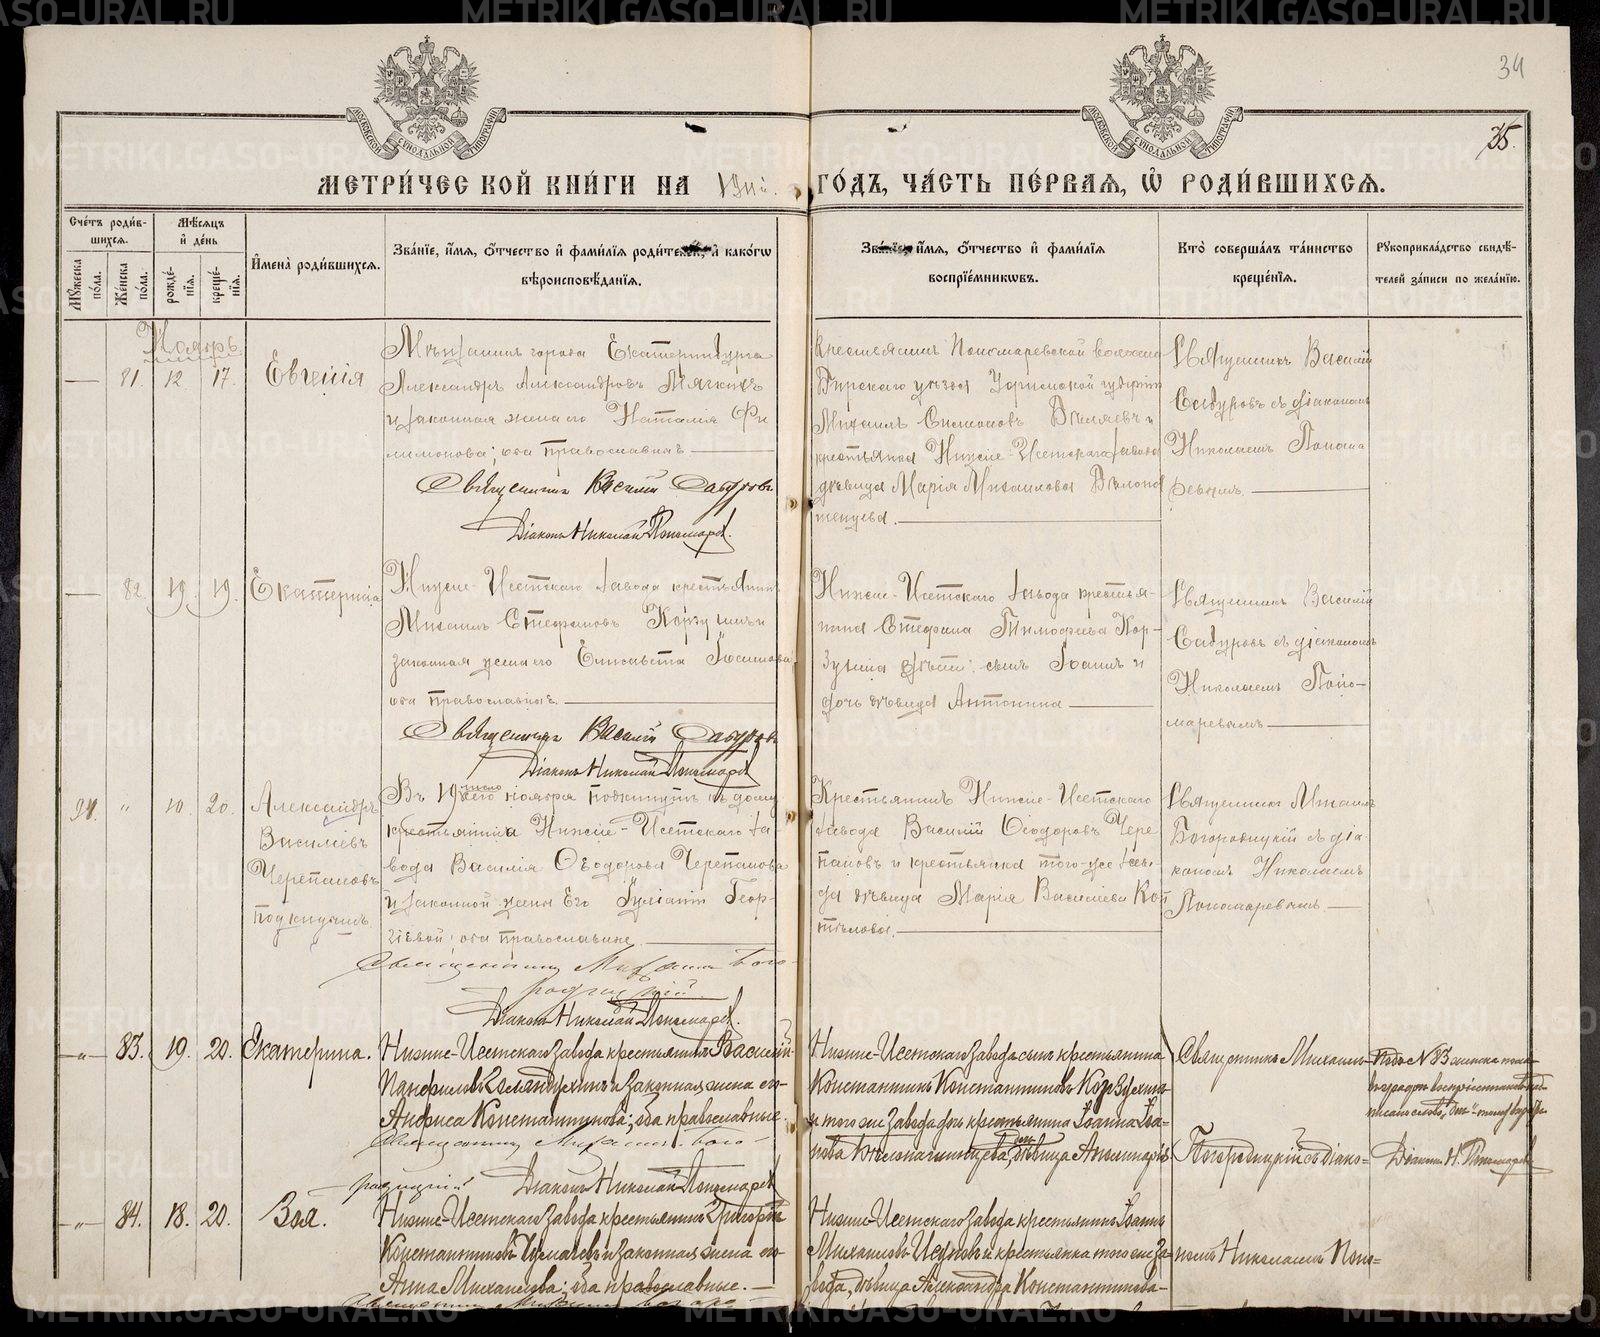 34
35.
МЕТРИЧЕСКОЙ КНИГИ НА 1911. ГОДЪ, ЧАСТЬ ПЕРВАЯ, Ѡ РОДИВШИХСЯ.
Счетъ родившихся.
Мужеска пола.
Женска пола.
Мѣсяцъ и день
рожденія.
крещенія.
Имена родившихся.
Званіе, имя, отчество и фамилія родителей, и какогѡ вѣроисповѣданія.
Званіе, имя, отчество и фамилія воспріемникѡвъ.
Кто совершалъ таинство крещенія.
Рукоприкладство свидѣтелей записи по желанію.
Ноябрь
81. 12. 17.
Евгенія
Мѣщанинъ города Екатеринбурга
Александръ Александровъ Мягкихъ
и законная жена его Наталія Фи
лимонова; оба православныя
Священникъ Василій Сабуровъ
Діаконъ Николай Пономарев.
Крестьянинъ Пономаревской волости
Бирскаго уѣзда Уфимской губерніи
Михаилъ Симоновъ Бѣляевъ и
крестьянка Нижне-Исетскаго завода
дѣвица Марія Михаилова Бѣлопа
шенцева.
Священникъ Василій
Сабуровъ съ діакономъ
Николаемъ Понома
ревымъ.
82. 19. 19.
Екатерина
Нижне-Исетскаго завода крестьянинъ
Михаилъ Стефановъ Корзухинъ и
законная жена его Елисавета Іоаннова
оба православныя.
Священникъ Василій Сабуровъ
Діаконъ Николай Пономарев
Нижне-Исетскаго завода крестья-
нина Стефана Тимофѣева Кор-
зухина дѣти: сынъ Іоаннъ и
дочь дѣвица Антонина
Священникъ Василій
Сабуровъ съ діакономъ
Николаемъ Поно-
маревымъ
91. " 10. 20.
Александръ
Василіевъ
Черепановъ
подкидышъ
Въ 19 число сего ноября подкинутъ къ дому
крестьянина Нижне-Исетскаго за-
вода Василія Ѳеодорова Черепанова
и законной жены Его Іуліаніи Геор-
гіевой; оба православные.
Священникъ Михаилъ Бого-
родицкій
Діаконъ Николай Пономарев.
Крестьянинъ Нижне-Исетскаго
завода Василій Ѳеодоровъ Чере
пановъ и крестьянка того-же заво-
да дѣвица Марія Василіева Кот
тѣлова.
Священникъ Михаилъ
Богородицкій съ діа
кономъ Николаемъ
Пономаревымъ
83. 19. 20.
Екатерина.
Нижне-Исетскаго завода крестьянинъ Василій
Панфиловъ и законная жена его
Анфиса Константинова; оба православные.
Священникъ Михаилъ Бого-
родицкій Діаконъ Николай Пономарев
Нижне-Исетскаго завода сынъ крестьянина
Константинъ Константиновъ Корзухинъ
и того же завода дочь крестьянина Іоанна Іоа-
нова Бѣлопашенцева, дѣвица
Священникъ Михаилъ
Богородицкій съ діако-
Діаконъ Н. Пономарев
84. 18. 20.
Зоя.
Нижне-Исетскаго завода крестьянинъ Григорій
Константиновъ Чумачевъ и законная жена его
Анна Михаилова; оба православные.
Нижне-Исетскаго завода крестьянинъ Іоаннъ
Михаиловъ и крестьянка того же за-
вода, дѣвица Александра Константинова-
номъ Николаемъ Поно-
METRIKI.GASO-URAL.RU